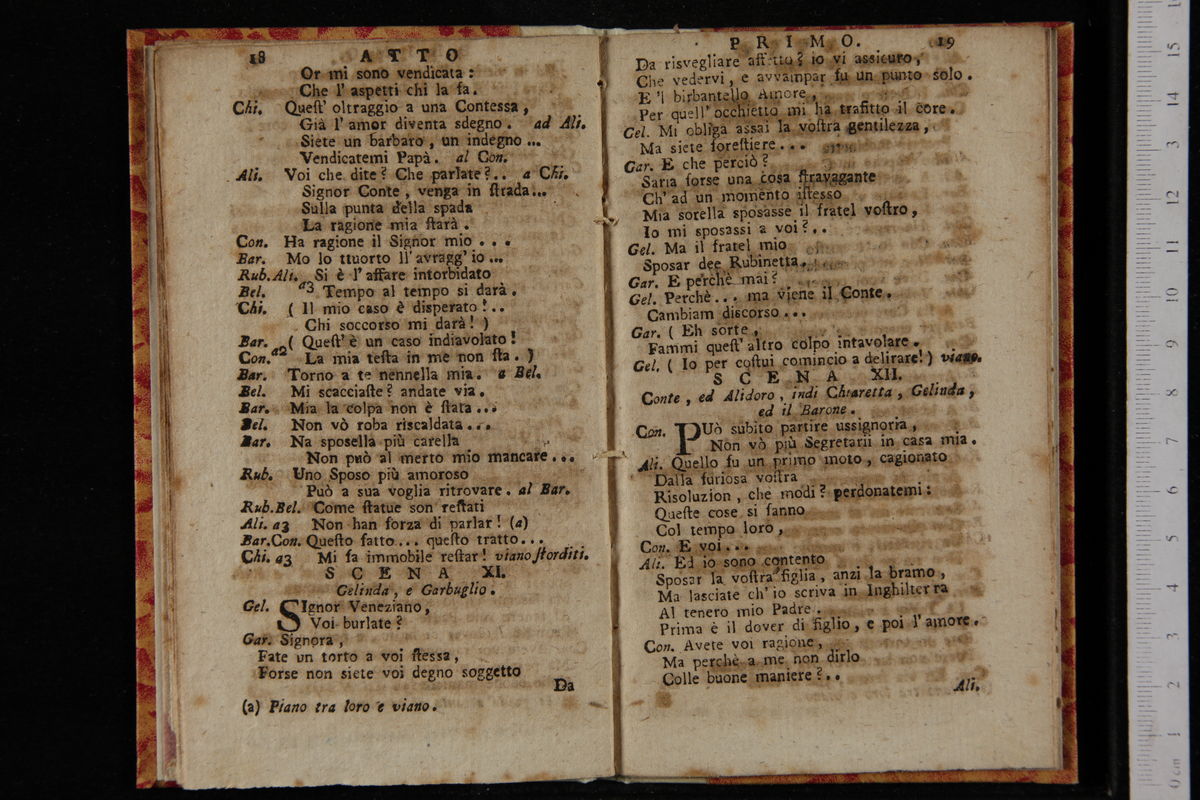 18 ATTO
Or mi sono vendicata :
Che l' aspetti chi la fa.
Chi. Queſt' oltraggio a una Contessa ,
Già l' amor diventa sdegno . ad Ali.
Siete un barbaro , un indegno ...
Vendicatemi Papà . al Con.
Ali. Voi che dite ? Che parlate ? .. a Chi.
Signor Conte , venga in ſtrada ...
Sulla punta della spada
La ragione mia ſtarà .
Con. Ha ragione il Signor mio . . .
Bar. Mo lo ttuorto ll' avragg' io ...
Rub.Ali. Si è l' affare intorbidato
Bel. a3 Tempo al tempo si darà .
Chi. ( Il mio caso è disperato ! ..
Chi soccorso mi darà ! )
Bar. ( Queſt' è un caso indiavolato !
Con. a2 La mia teſta in me non ſta . )
Bar. Torno a te nennella mia . a Bel.
Bel. Mi scacciaſte ? andate via .
Bar. Mia la colpa non è ſtata ...
Bel. Non vò roba riscaldata ...
Bar. Na sposella più carella
Non può al merto mio mancare ...
Rub. Uno Sposo più amoroso
Può a sua voglia ritrovare . al Bar.
Rub.Bel. Come ſtatue son reſtati
Ali. a3 Non han forza di parlar ! (a)
Bar.Con. Queſto fatto ... queſto tratto ...
Chi. a3 Mi fa immobile reſtar ! viano ſtorditi.
SCENA XI.
Gelinda , e Garbuglio .
Gel. SIgnor Veneziano ,
Voi burlate ?
Gar. Signora ,
Fate un torto a voi ſtessa ,
Forse non siete voi degno soggetto
Da
(a) Piano tra loro e viano .
PRIMO. 19
Da risvegliare affetto ? io vi assicuro ,
Che vedervi , e avvampar fu un punto solo .
E 'l birbantello Amore ,
Per quell' occhietto mi ha trafitto il core .
Gel. Mi obliga assai la voſtra gentilezza ,
Ma siete foreſtiere . . .
Gar. E che perciò ?
Saria forse una cosa ſtravagante
Ch' ad un momento iſtesso
Mia sorella sposasse il fratel voſtro ,
Io mi sposassi a voi ? ..
Gel. Ma il fratel mio
Sposar dee Rubinetta .
Gar. E perchè mai ?
Gel. Perchè ... ma viene il Conte .
Cambiam discorso ...
Gar. ( Eh sorte ,
Fammi queſt' altro colpo intavolare .
Gel. ( Io per coſtui comincio a delirare! ) viano.
SCENA XII.
Conte , ed Alidoro , indi Chiaretta , Gelinda ,
ed il Barone .
Con. PUò subito partire ussignoria ,
Non vò più Segretarii in casa mia .
Ali. Quello fu un primo moto , cagionato
Dalla furiosa voſtra
Risoluzion , che modi ? perdonatemi :
Queſte cose si fanno
Col tempo loro ,
Con. E voi ...
Ali. Ed io sono contento
Sposar la voſtra figlia , anzi la bramo ,
Ma lasciate ch' io scriva in Inghilterra
Al tenero mio Padre .
Prima è il dover di figlio , e poi l' amore .
Con. Avete voi ragione ,
Ma perchè a me non dirlo
Colle buone maniere ? ..
Ali.
15
14
13
12
11
10
9
8
7
6
5
4
3
2
1
0 cm